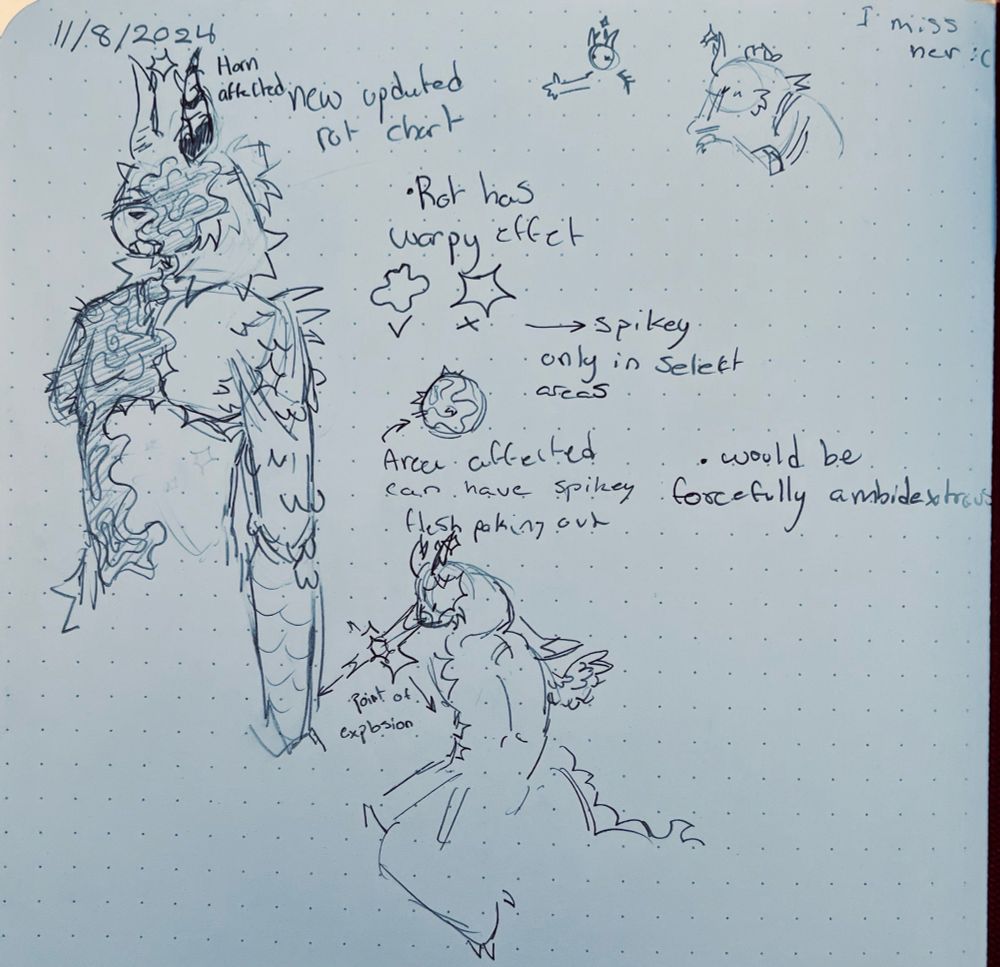 11/8/2024
I miss
her :c
Horn
affected
new updated
rot chart
•Rot has
warpy effect
✓ ×
→ spikey
only in select
areas
Area affected
can have spikey
flesh poking out
• would be
forcefully ambidextrous
Point of
explosion